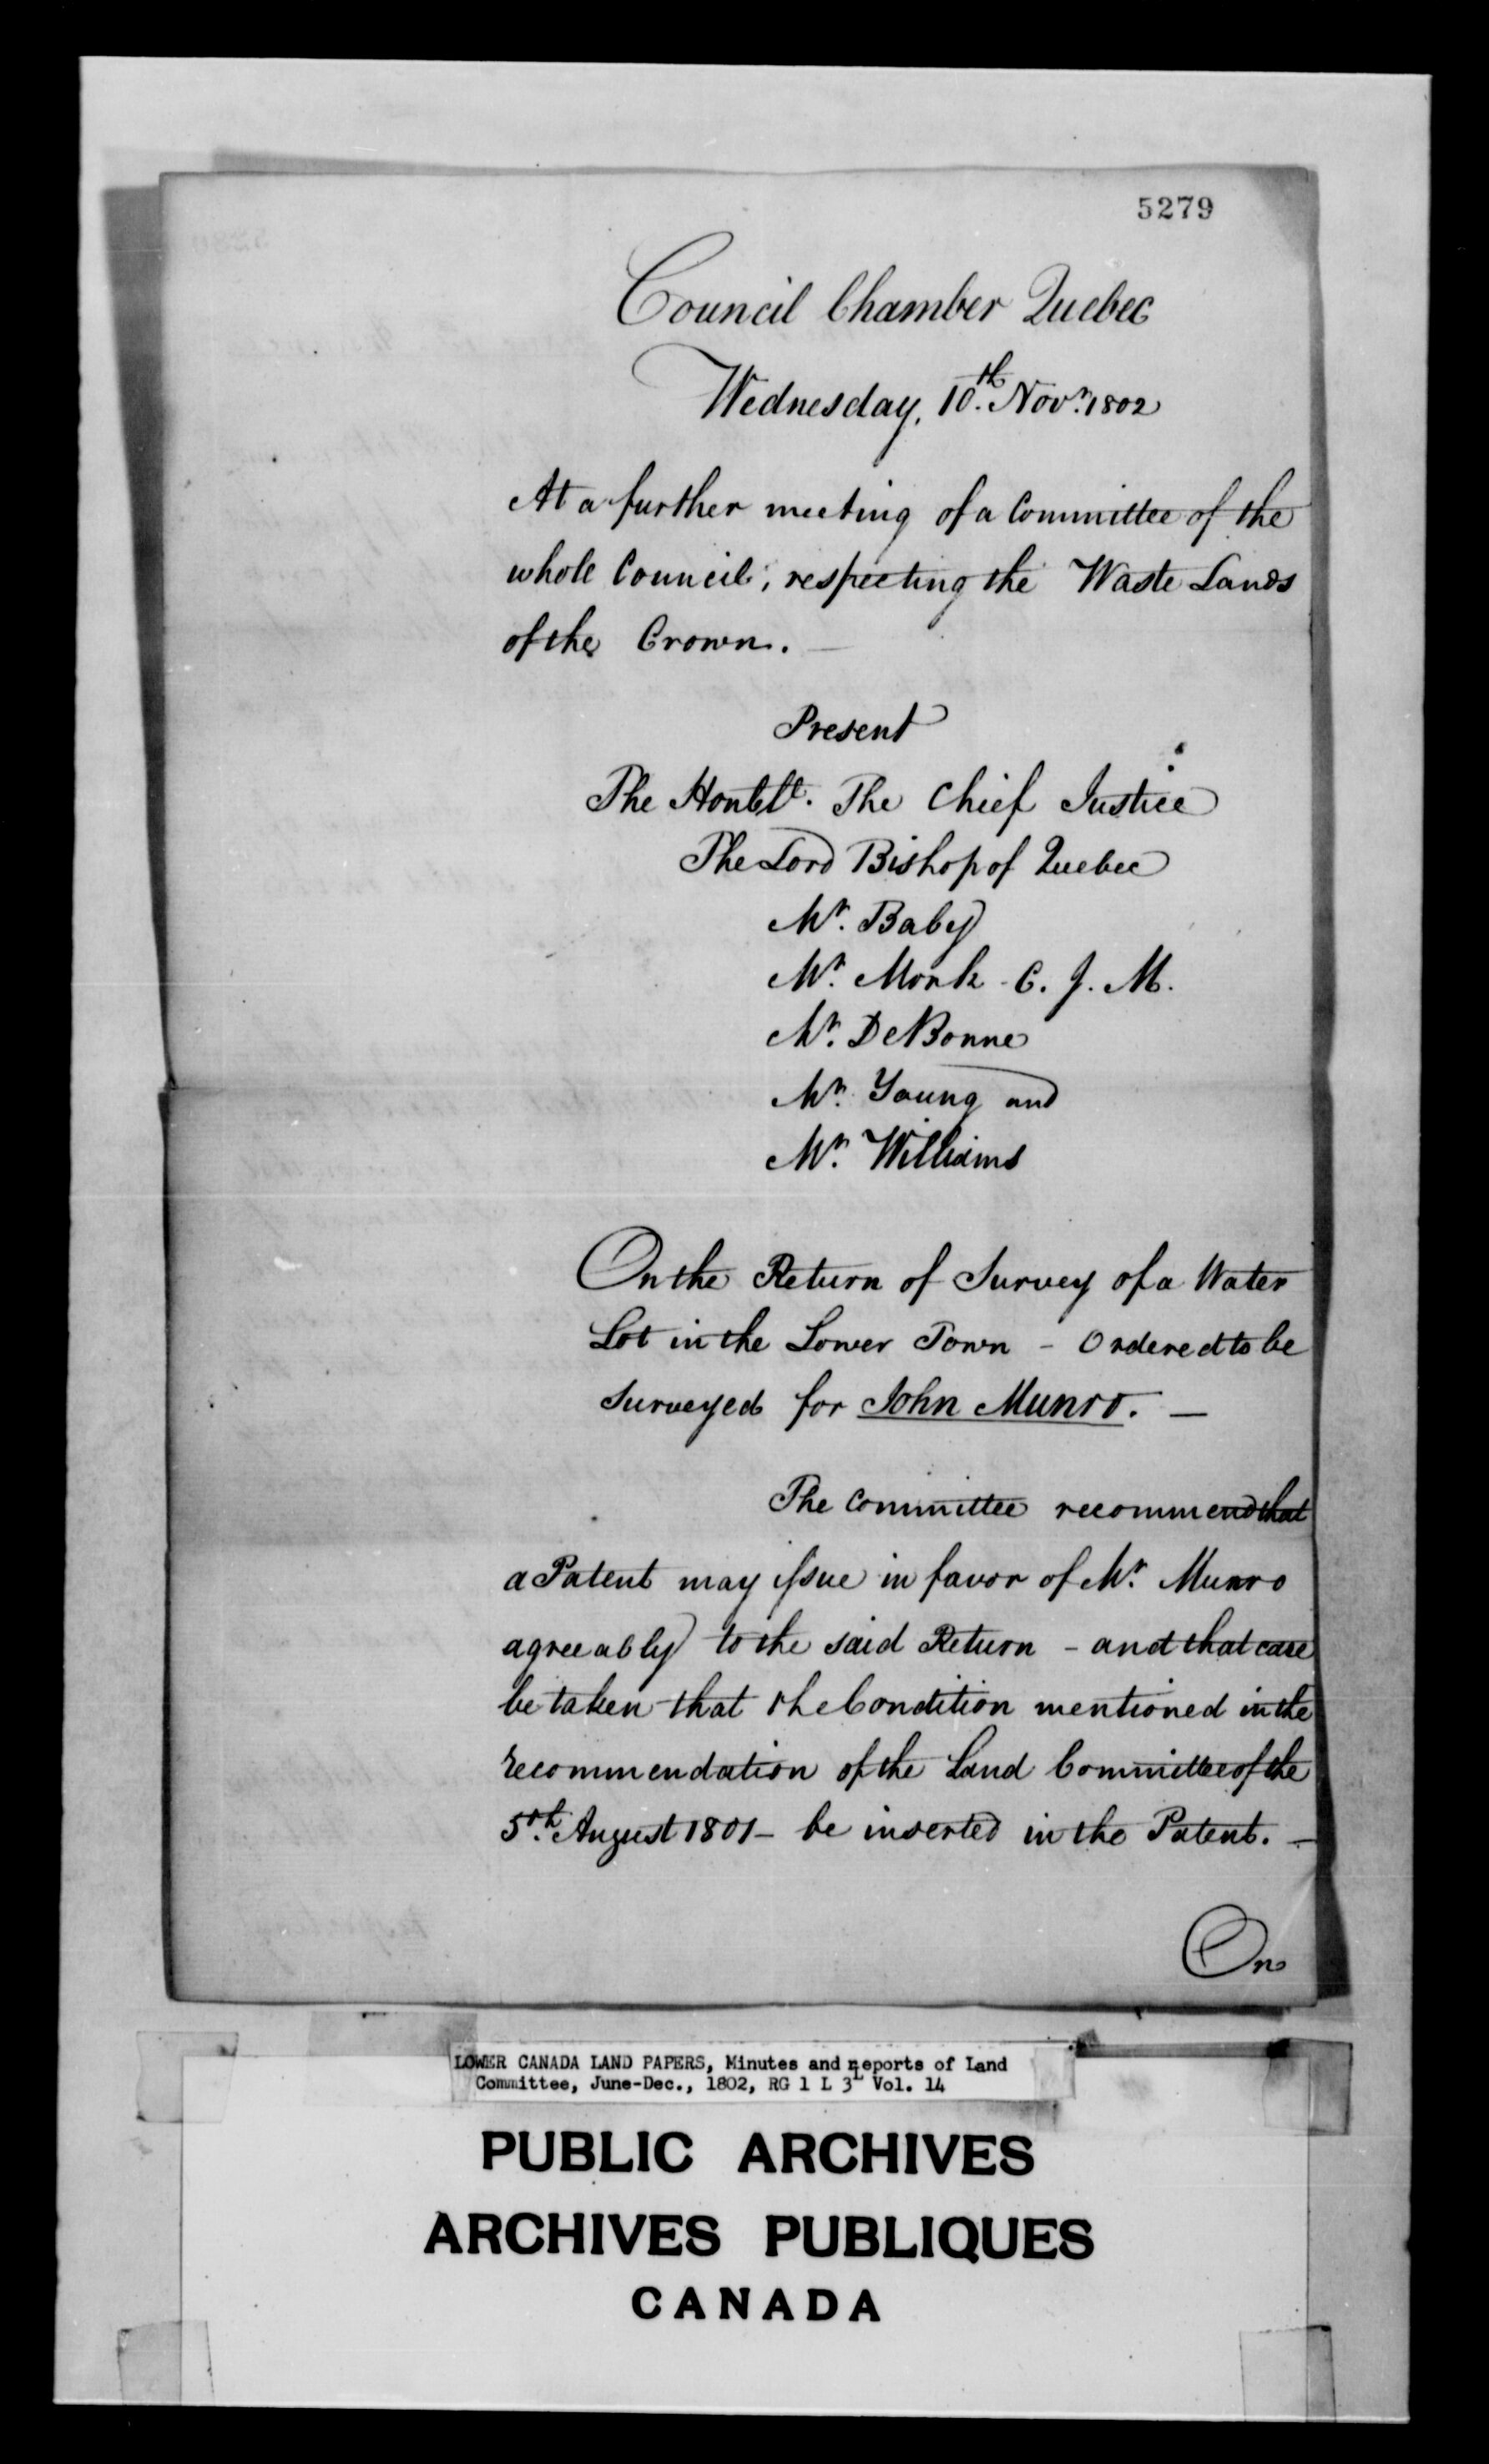 5279
Council Chamber Quebec
Wednesday, 10th. Novr. 1802
At a further meeting of a Committee of the
whole Council, respecting the Waste Lands
of the Crown. —
Present
The Honble. The Chief Justice
The Lord Bishop of Quebec
Mr. Baby
Mr. Monk - C. J. M.
Mr. DeBonne
Mr. Young and
Mr. Williams
On the Return of Survey of a Water
Lot in the Lower Town - Ordered to be
Surveyed for John Munro. —
The Committee recommend that
a Patent may issue in favor of Mr. Munro
agreeably to the said Return - and that care
be taken that the Condition mentioned in the
recommendation of the Land Committee of the
5th. August 1801 - be inserted in the Patent. —
On
LOWER CANADA LAND PAPERS, Minutes and Reports of Land
Committee, June-Dec., 1802, RG 1 L 3L Vol. 14
PUBLIC ARCHIVES
ARCHIVES PUBLIQUES
CANADA